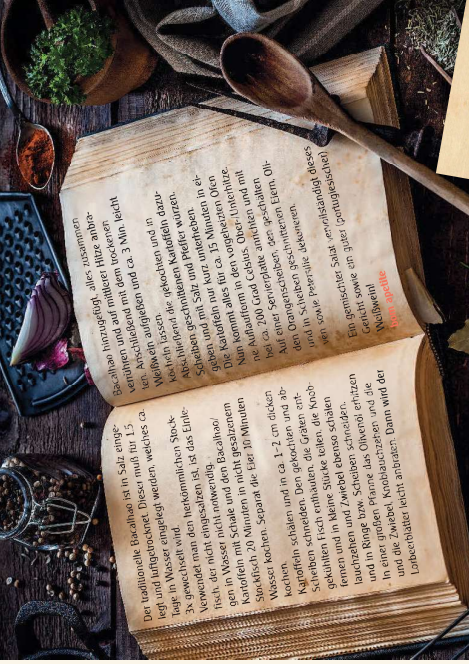 Der traditionelle Bacalhao ist in Salz einge-
legt und luftgetrocknet. Dieser muß für 1,5
Tage in Wasser eingelegt werden, welches ca.
3x gewechselt wird.
Verwendet man den herkömmlichen Stock-
fisch, der nicht eingesalzen ist, ist das Einle-
gen in Wasser nicht notwendig.
Kartoffeln mit Schale und den Bacalhao/
Stockfisch 20 Minuten in nicht gesalzenem
Wasser kochen. Separat die Eier 10 Minuten
kochen.
Kartoffeln schälen und in ca. 1-2 cm dicken
Scheiben schneiden. Den gekochten und ab-
gekühlten Fisch enthäuten, die Gräten ent-
fernen und in kleine Stücke teilen, die Knob-
lauchzehen und Zwiebel ebenso schälen
und in Ringe bzw. Scheiben schneiden.
In einer großen Pfanne das Olivenöl erhitzen
und die Zwiebel, Knoblauchzehen und die
Lorbeerblätter leicht anbraten. Dann wird der
Bacalhao hinzugefügt, alles zusammen
verrühren und auf mittlerer Hitze anbra-
ten. Anschließend mit dem trockenen
Weißwein aufgießen und ca. 3 Min. leicht
köcheln lassen.
Abschließend die gekochten und in
Scheiben geschnittenen Kartoffeln dazu-
geben und mit Salz und Pfeffer würzen.
Die Kartoffeln nur kurz unterheben.
Nun kommt alles für ca. 15 Minuten in ei-
ne Auflaufform in den vorgeheizten Ofen
bei ca. 200 Grad Celsius, Ober/Unterhitze.
Auf einer Servierplatte anrichten und mit
den in Scheiben geschnittenen Eiern, Oli-
ven sowie Petersilie dekorieren.
Ein gemischter Salat vervollständigt dieses
Gericht sowie ein guter (portugiesischer)
Weißwein!